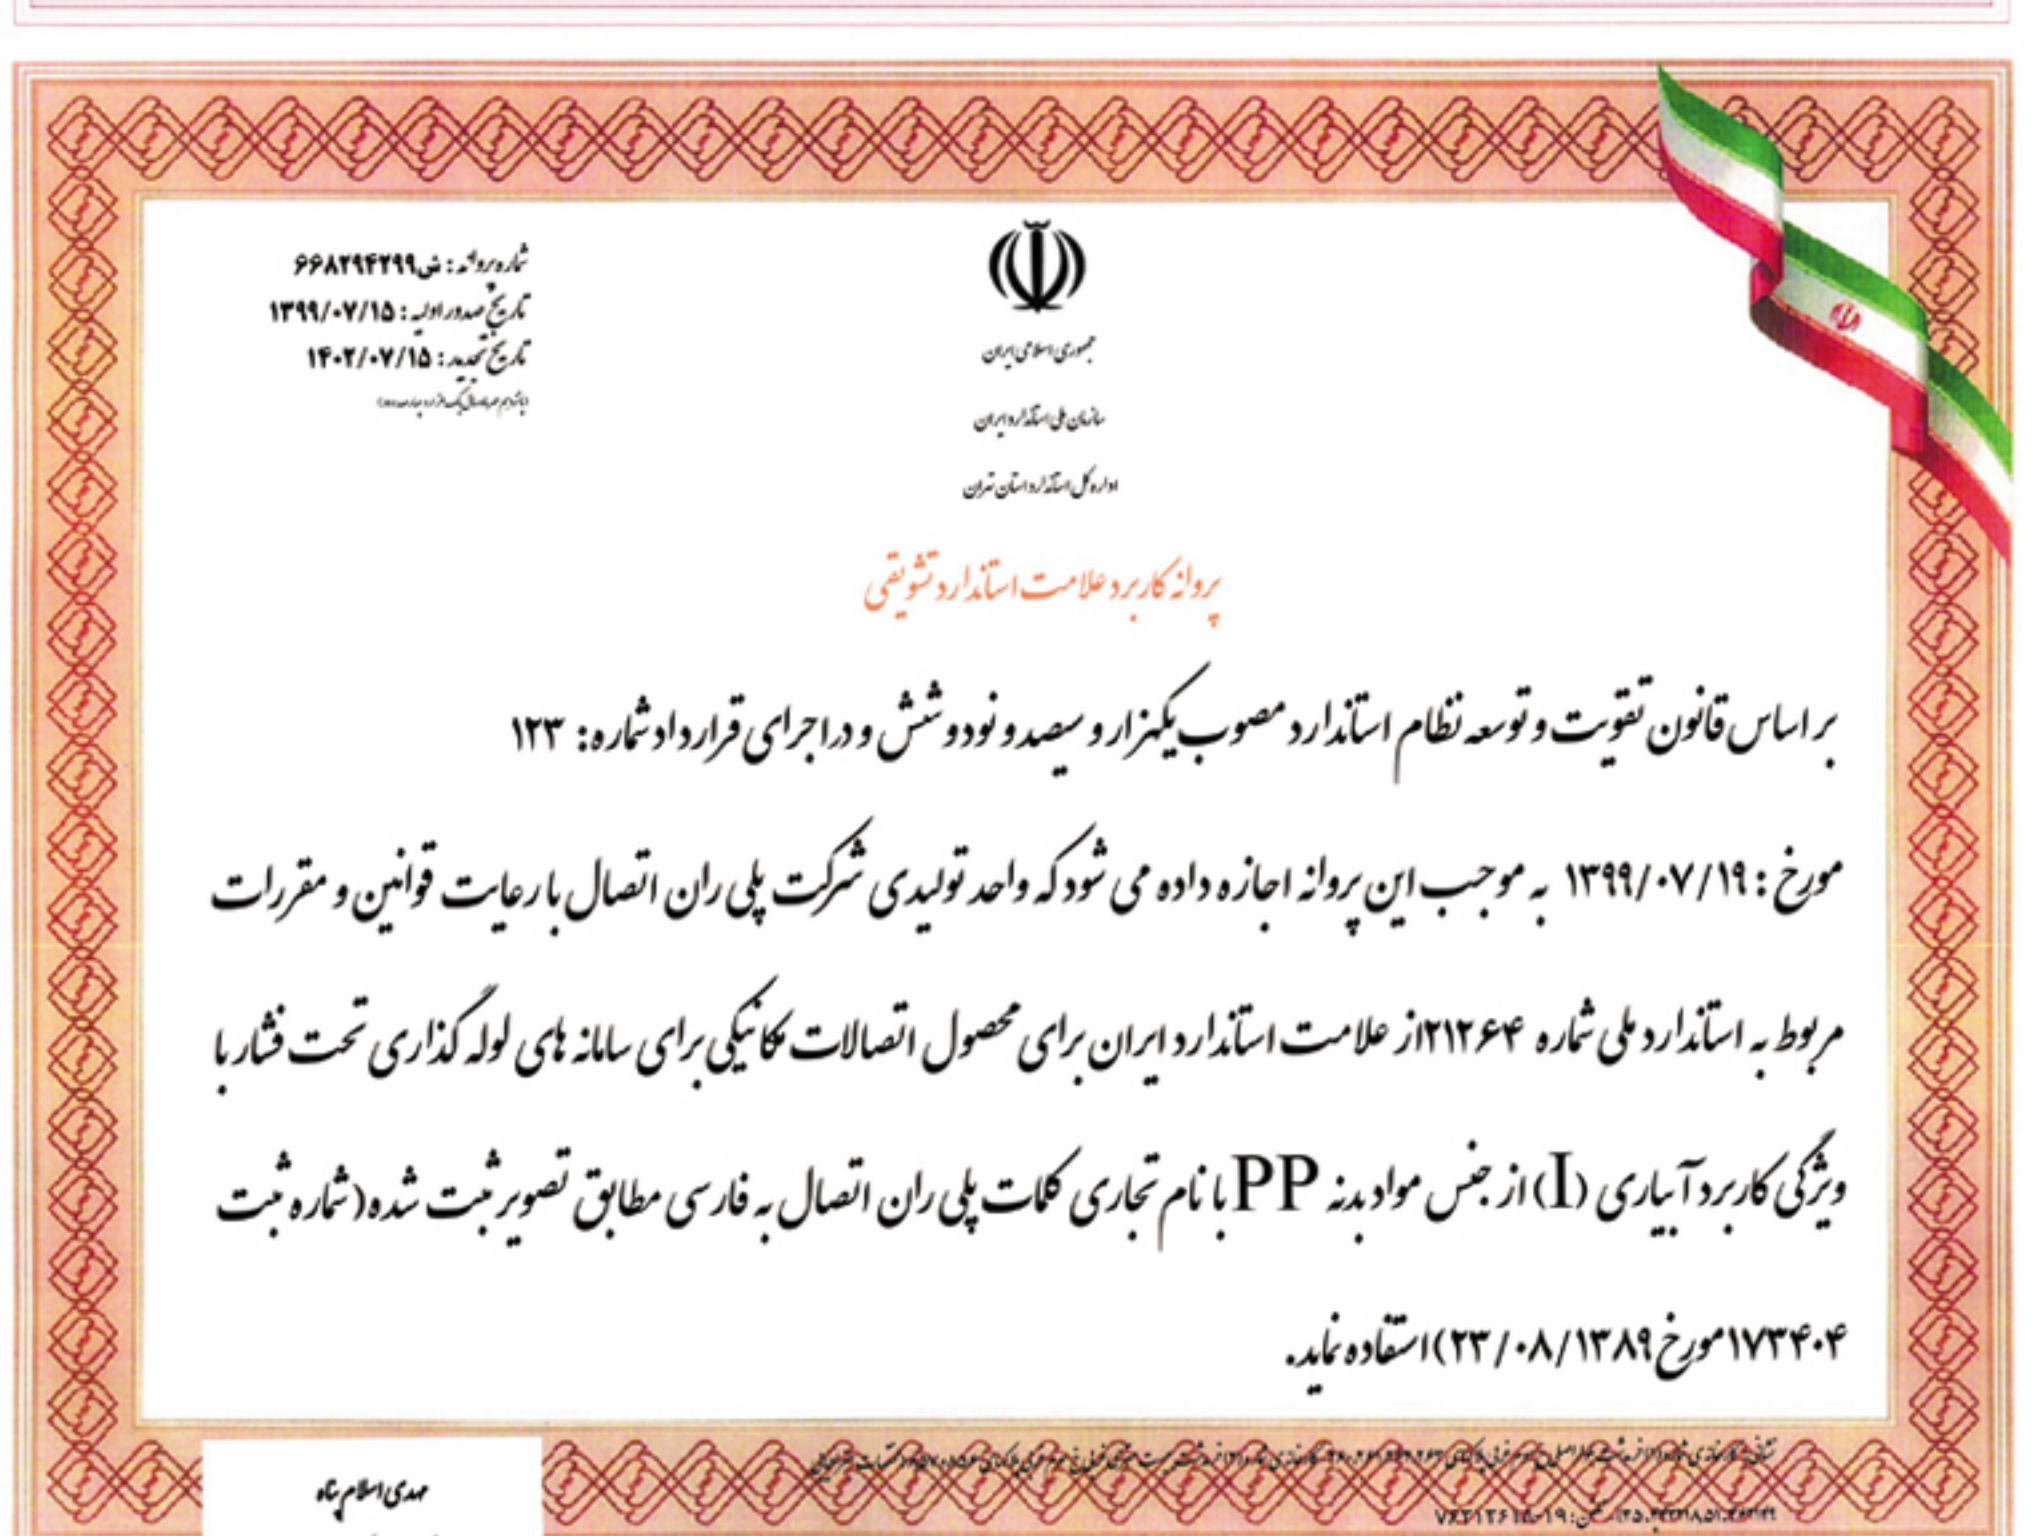 شماره پروانه: ش۶۶۸۲۹۴۲۹۹
تاریخ صدور اولیه: ۱۳۹۹/۰۷/۱۵
تاریخ تجدید: ۱۴۰۲/۰۷/۱۵
جمهوری اسلامی ایران
سازمان ملی استاندارد ایران
اداره کل استاندارد استان تهران
پروانه کاربرد علامت استاندارد تشویقی
بر اساس قانون تقویت و توسعه نظام استاندارد مصوب یکهزار و سیصد و نود و شش و در اجرای قرارداد شماره: ۱۲۳
مورخ: ۱۳۹۹/۰۷/۱۹ به موجب این پروانه اجازه داده می شود که واحد تولیدی شرکت پلی ران اتصال با رعایت قوانین و مقررات
مربوط به استاندارد ملی شماره ۲۱۲۶۴از علامت استاندارد ایران برای محصول اتصالات مکانیکی برای سامانه های لوله گذاری تحت فشار با
ویژگی کاربرد آبیاری (I) از جنس مواد بدنه PP با نام تجاری کلمات پلی ران اتصال به فارسی مطابق تصویر ثبت شده(شماره ثبت
۱۷۳۴۰۴مورخ ۲۳/۰۸/۱۳۸۹)استفاده نماید.
مهدی اسلام پناه